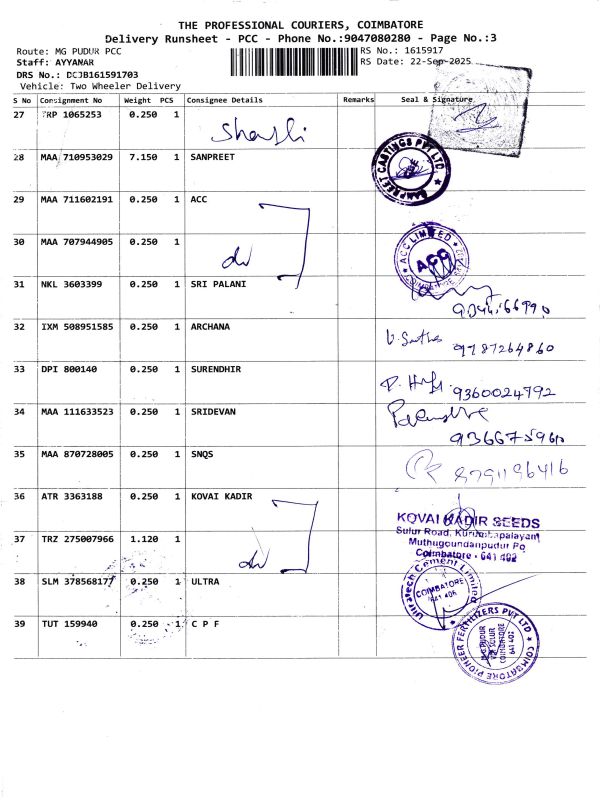 THE PROFESSIONAL COURIERS, COIMBATORE
Delivery Runsheet - PCC - Phone No.:9047080280 - Page No.:3
Route: MG PUDUR PCC
RS No.: 1615917
Staff: AYYANAR
RS Date: 22-Sep-2025
DRS No.: DCJB161591703
Vehicle: Two Wheeler Delivery
S No Consignment No Weight PCS Consignee Details Remarks Seal & Signature
27 TRP 1065253 0.250 1
28 MAA 710953029 7.150 1 SANPREET
SANPREET CASTINGS PVT LTD
29 MAA 711602191 0.250 1 ACC
30 MAA 707944905 0.250 1
ACC LIMITED
ACC
31 NKL 3603399 0.250 1 SRI PALANI
32 IXM 508951585 0.250 1 ARCHANA
9787264860
33 DPI 800140 0.250 1 SURENDHIR
9360024792
34 MAA 111633523 0.250 1 SRIDEVAN
35 MAA 870728005 0.250 1 SNQS
8791196416
36 ATR 3363188 0.250 1 KOVAI KADIR
KOVAI KADIR SEEDS
Sulur Road, Kurumbapalayam
Muthugoundanpudur Po
Coimbatore - 641 402
37 TRZ 275007966 1.120 1
38 SLM 378568177 0.250 1 ULTRA
Ultratech Cement Limited
COIMBATORE
641 406
39 TUT 159940 0.250 1 C P F
PIONEER FERTILIZERS PVT LTD
COIMBATORE
641 402